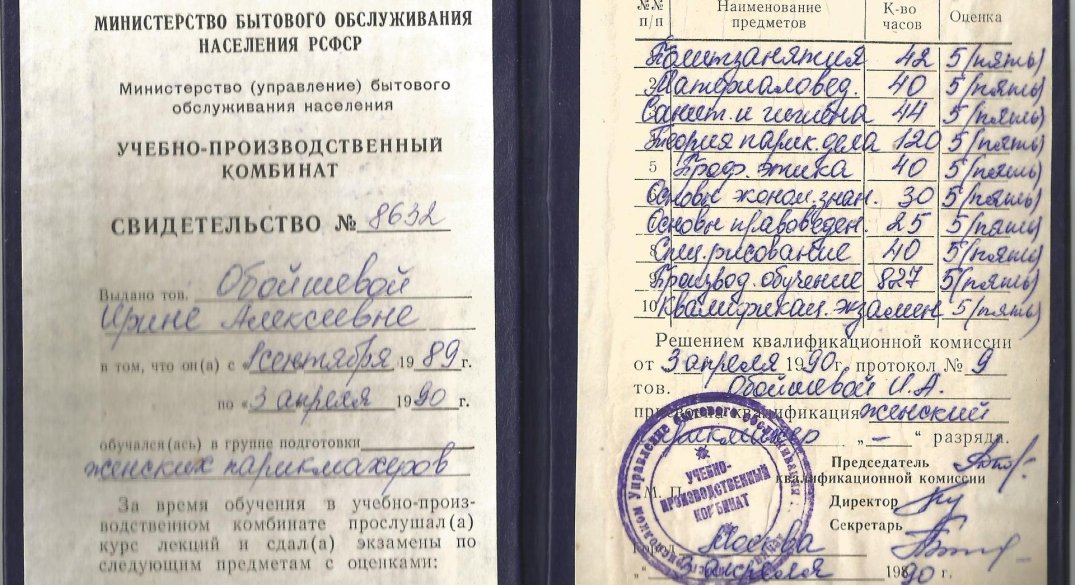 МИНИСТЕРСТВО БЫТОВОГО ОБСЛУЖИВАНИЯ
НАСЕЛЕНИЯ РСФСР
Министерство (управление) бытового
обслуживания населения
УЧЕБНО-ПРОИЗВОДСТВЕННЫЙ
КОМБИНАТ
СВИДЕТЕЛЬСТВО № 8632
Выдано тов. Обойшевой
Ирине Алексеевне
в том, что он(а) с 1 сентября 1989 г.
по «3 апреля 1990 г.
обучался(ась) в группе подготовки
женских парикмахеров
За время обучения в учебно-произ-
водственном комбинате прослушал(а)
курс лекций и сдал(а) экзамены по
следующим предметам с оценками:
№№ п/п Наименование предметов К-во часов Оценка
Политзанятия 42 5 (пять)
Материаловед. 40 5 (пять)
Санит. и гигиена 44 5 (пять)
Теория парик. дела 120 5 (пять)
5 Проф. этика 40 5 (пять)
Основы эконом. знан. 30 5 (пять)
Основы правоведен. 25 5 (пять)
8 Спец. рисование 40 5 (пять)
Производ. обучение 827 5 (пять)
10 Квалификац. экзамен 5 (пять)
Решением квалификационной комиссии
от 3 апреля 1990 г. протокол № 9
тов. Обойшевой И. А.
присвоена квалификация женский
парикмахер „ – “ разряда.
Председатель
М. П. квалификационной комиссии
Директор
Секретарь
Город Москва
„ “ 3 апреля 1990 г.
УЧЕБНО-
ПРОИЗВОДСТВЕННЫЙ
КОМБИНАТ
Управление бытового обслуживания